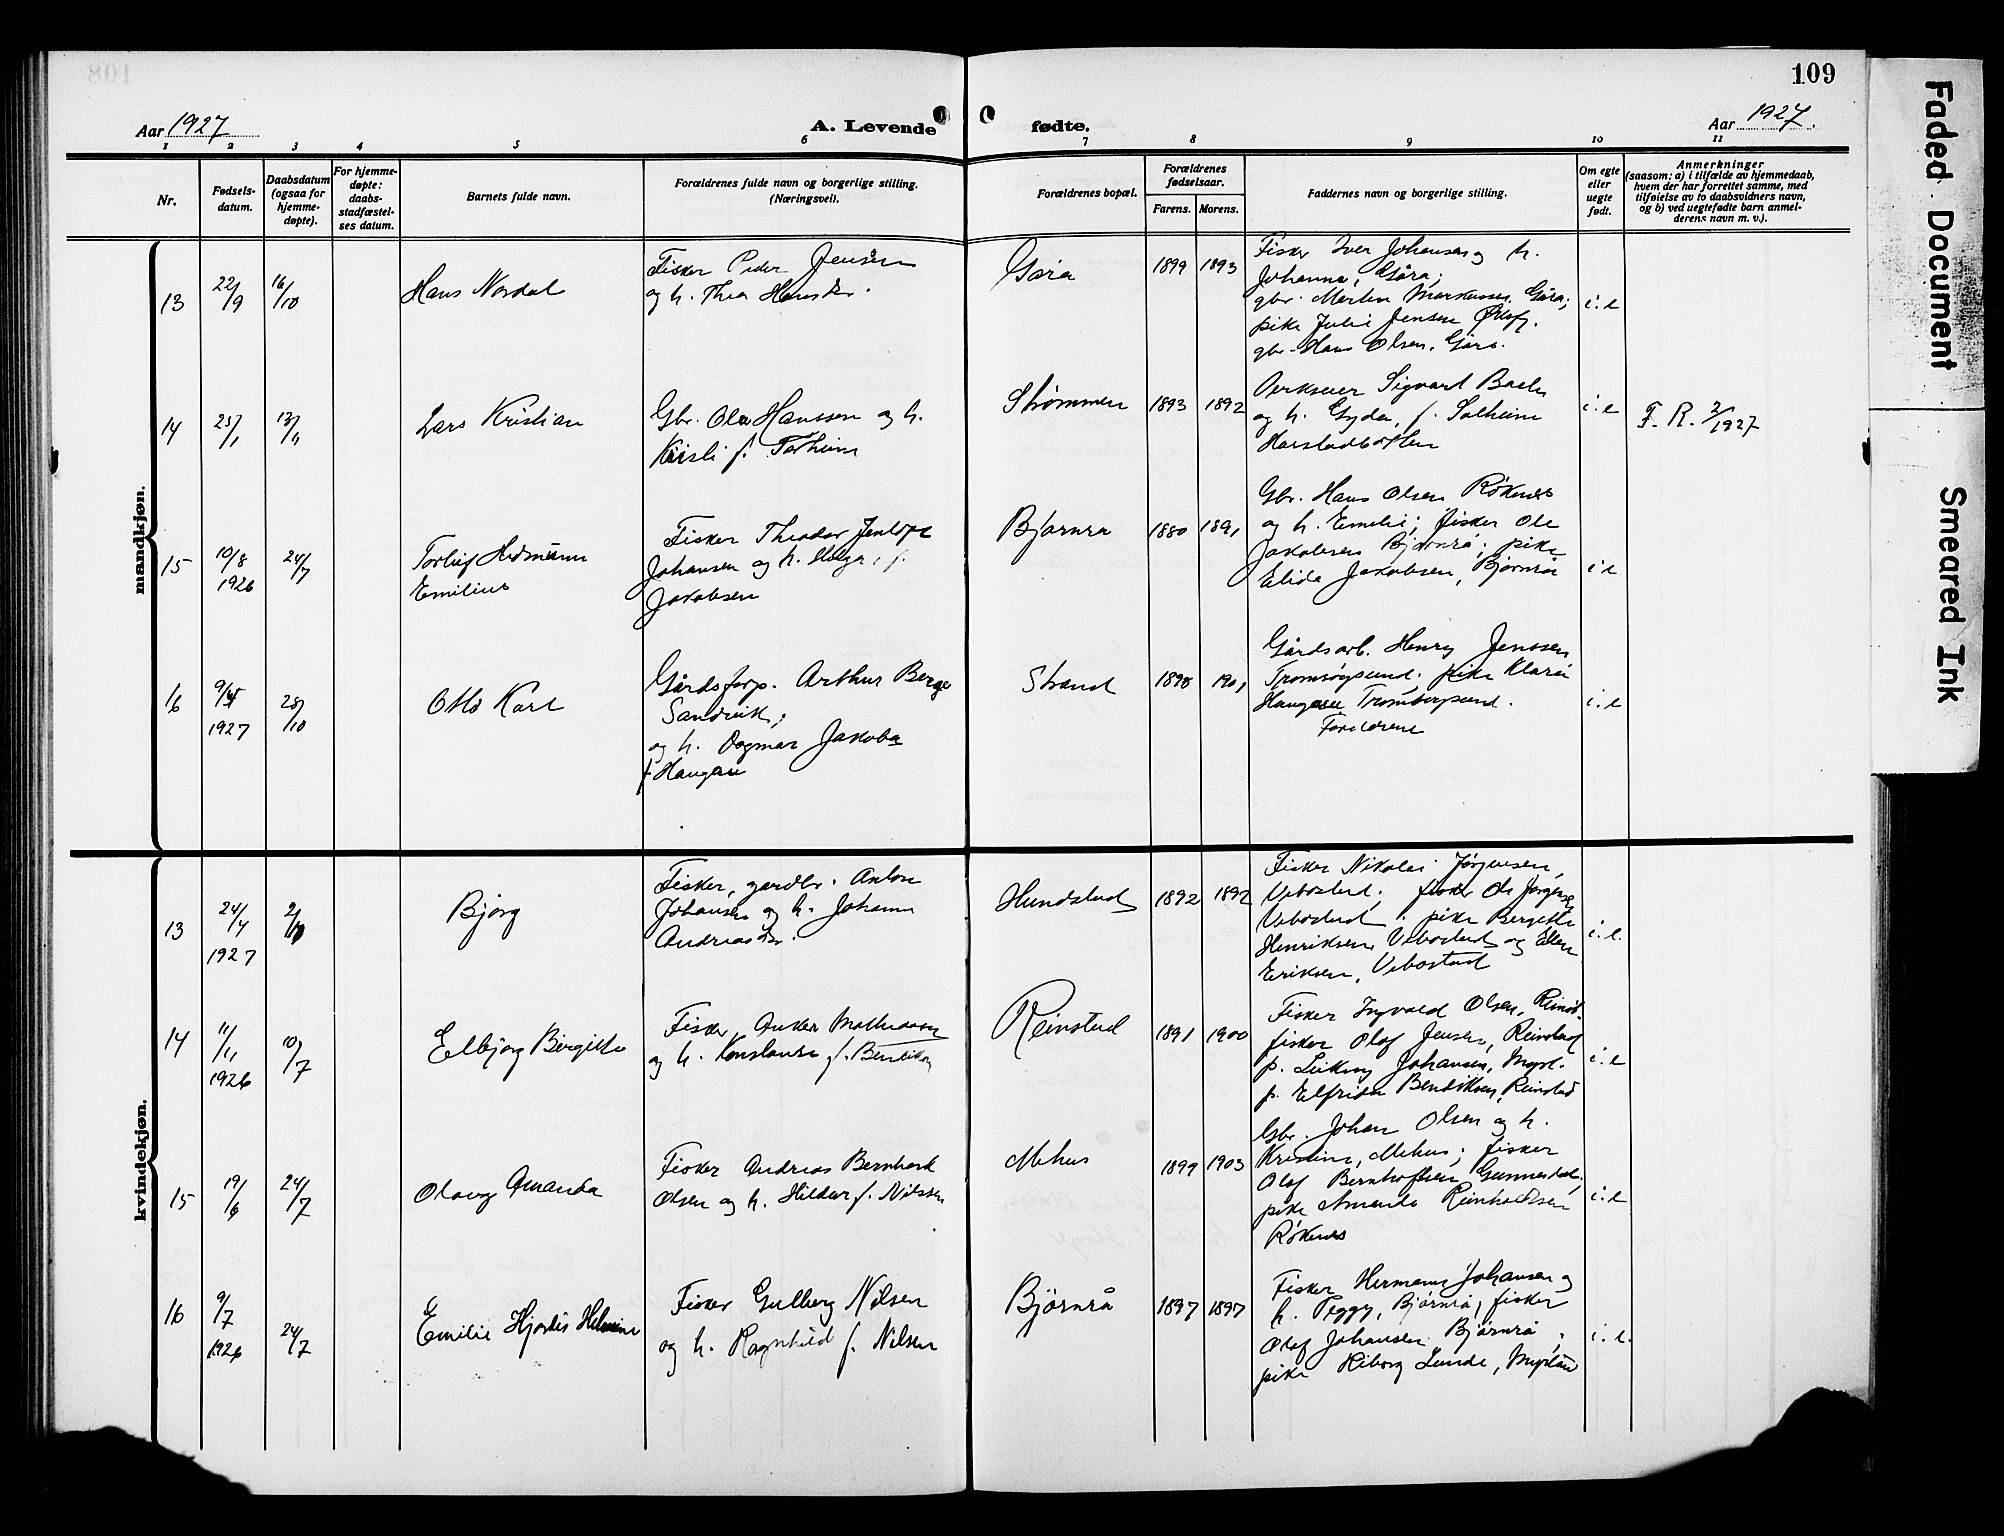 109
Aar 1927
A. Levende fødte.
Aar 1927.
1 2 3 4 5 6 7 8 9 10 11
Nr.
Fødsels-
datum.
Daabsdatum
(ogsaa for
hjemme-
døpte).
For hjemme-
døpte:
daabs-
stadfæstel-
ses datum.
Barnets fulde navn.
Forældrenes fulde navn og borgerlige stilling.
(Næringsvei).
Forældrenes bopæl.
Forældrenes
fødselsaar.
Farens. Morens.
Faddernes navn og borgerlige stilling.
Om egte
eller
uegte
født.
Anmerkninger
(saasom: a) i tilfælde av hjemmedaab,
hvem der har forrettet samme, med
tilføielse av to daabsvidners navn,
og b) ved uegtefødte barn anmel-
derens navn m. v.).
mandkjøn.
13
22/9
16/10
Hans Nordal
Fisker Peder Jensen
og h. Thea Hansdr.
Gåra
1899 1893
Fisker Iver Johansen og h.
Johanna, Gåra;
gbr. Martin Markussen Gåra;
pike Julie Jensen
gbr. Hans Olsen, Gåra.
i. e
14
25/1
13/11
Lars Kristian
Gbr. Ola Hanssen og h.
Kirsti f. Torheim
Strømmen
1893 1892
Sigvard Bach
og h. Gyda, f. Solheim
Harstadbotten
i. e
F. R. 2/1927
15
10/8
1926
24/7
Torleif Hedmann
Emilius
Fisker Theodor Jentoft
Johansen og h. Helga, f.
Jakobsen
Bjørnrå
1880 1891
Gbr. Hans Olsen Røkenes
og h. Emelie; fisker Ole
Jakobsen Bjørnrå; pike
Elida Jakobsen, Bjørnrå
i e
16
9/5
1927
28/10
Otto Karl
Gårdsforp. Arthur Berge
Sandvik;
og h. Dagmar Jakoba
f. Haugan
Strand
1898 1901
Gårdsarb. Henry Jenssen
Tromsøysund. pike Klara
Haugan
Foreldrene
i. e
kvindekjøn.
13
24/4
1927
2/7
Bjørg
Fisker, gardbr. Anton
Johansen og h. Johanna
Andreasdr.
Hundstad
1892 1892
Fisker Nikolai Jørgensen,
Vebostad; fisker Ole Jørgensen
Vebostad; pike Bergitte
Henriksen, Vebostad og Ellen
Eriksen, Vebostad
i. e.
14
11/11
1926
10/7
Elbjørg Bergitte
Fisker, Anker Mathiassen
og h. Konstanse f. Bendiksen
Reinstad
1891 1900
Fisker Ingvald Olsen, Reinst.
fisker Olaf Jensen, Reinstad
p. Johansen, Myrl.
p. Elfrida Bendiksen, Reinstad
i. e
15
19/6
24/7
Olaug Amanda
Fisker Andreas Bernhard
Olsen og h. Hildur f. Nilssen
Mehus
1899 1903
Gbr. Johan Olsen og h.
Kristine, Mehus; fisker
Olaf Bernhoftsen, Gunnestad,
pike Amanda Reinholdtsen
Røkenes
i. e
16
9/7
1926
24/7
Emilie Hjørdis Helmine
Fisker Gulberg Nilsen
og h. Ragnhild f. Nilsen
Bjørnrå
1897 1897
Fisker Hermann Johansen og
h. Peggy, Bjørnrå; fisker
Olaf Johansen Bjørnrå,
pike Hiborg Lunde, Myrland
i. e.
Faded Document
Smeared Ink